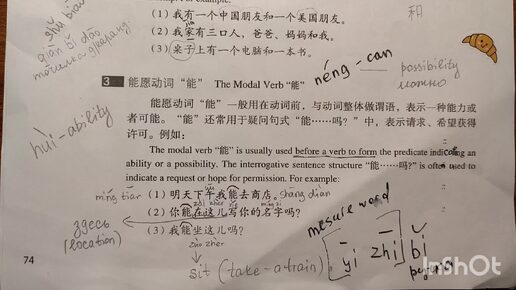 shū biāo
qiān bǐ dào
和
(1) 我有一个中国朋友和一个美国朋友。
(2) 我家有三口人，爸爸、妈妈和我。
(3) 桌子上有一个电脑和一本书。
3 能愿动词“能” The Modal Verb “能”
néng - can
possibility
можно
能愿动词“能”一般用在动词前，与动词整体做谓语，表示一种能力或
者可能。“能”还常用于疑问句式“能……吗？”中，表示请求、希望获得
许可。例如：
huì - ability
The modal verb “能” is usually used before a verb to form the predicate indicating an
ability or a possibility. The interrogative sentence structure “能……吗?” is often used to
indicate a request or hope for permission. For example:
míng tiān
(1) 明天下午我能去商店。 shāng diàn
(2) 你能在这儿写你的名字吗？
(3) 我能坐这儿吗？
здесь
(location)
zuò zher
sit (take-a train)
mesure word
yī zhī bǐ
74
InShOt